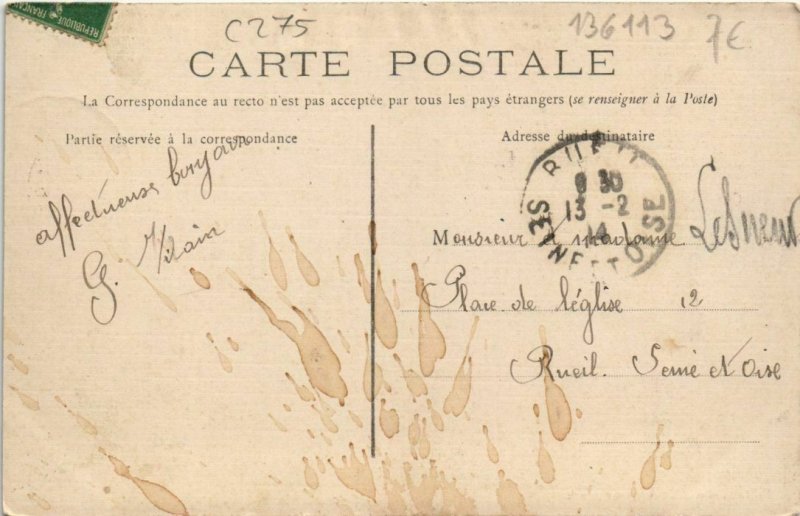 C275
136113 7€
RÉPUBLIQUE FRANÇAISE
CARTE POSTALE
La Correspondance au recto n'est pas acceptée par tous les pays étrangers (se renseigner à la Poste)
Partie réservée à la correspondance
Adresse du destinataire
affectueux
G.
RUEIL
8 30
13-2
14
SEINE ET OISE
Monsieur et madame
Place de l'église 12
Rueil. Seine et Oise